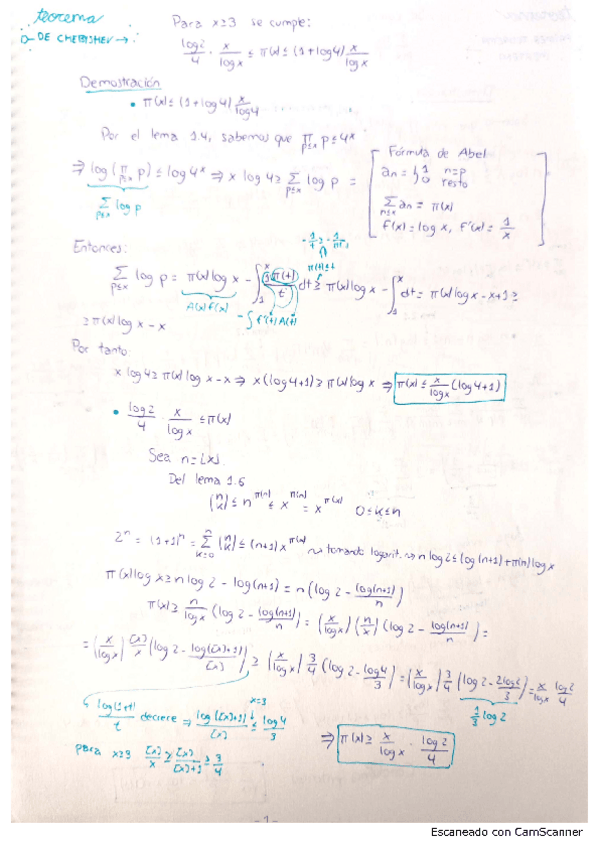 teorema
DE CHEBISHEV →
Para x≥3 se cumple:
log2/4 · x/logx ≤ π(x) ≤ (1+log4) x/logx
Demostración
• π(x) ≤ (1+log4) x/log4
Por el lema 1.4, sabemos que ∏_{p≤x} p ≤ 4^x
⇒ log(∏_{p≤x} p) ≤ log4^x ⇒ x log4 ≥ ∑_{p≤x} log p =
∑_{p≤x} log p
Fórmula de Abel
an = { 1 n=p
0 resto
∑_{n≤x} an = π(x)
f(x) = log x, f'(x) = 1/x
Entonces:
π(t)≤t
∑_{p≤x} log p = π(x) log x - ∫_1^x π(t)/t dt ≥ π(x) log x - ∫_1^x dt = π(x) log x - x+1 ≥
A(x) f(x)
- ∫ f'(t) A(t)
≥ π(x) log x - x
Por tanto:
x log4 ≥ π(x) log x - x ⇒ x(log4+1) ≥ π(x) log x ⇒ π(x) ≤ x/logx (log4+1)
• log2/4 · x/logx ≤ π(x)
Sea n = [x].
Del lema 1.6
(n k) ≤ n^π(n) ≤ x^π(n) = x^π(x) 0≤k≤n
2^n = (1+1)^n = ∑_{k=0}^n (n k) ≤ (n+1) x^π(x) ⇝ tomando logarit. ⇝ n log2 ≤ log(n+1) + π(n) log x
π(x) log x ≥ n log2 - log(n+1) = n (log2 - log(n+1)/n)
π(x) ≥ n/logx (log2 - log(n+1)/n) = (x/logx)(n/x)(log2 - log(n+1)/n) =
= (x/logx) [x]/x (log2 - log([x]+1)/[x]) ≥ (x/logx) 3/4 (log2 - log4/3) = (x/logx) 3/4 (log2 - 2log2/3) = x/logx log2/4
1/3 log2
x=3
log(1+t)/t decrece ⇒ log([x]+1)/[x] ≤ log4/3
⇒ π(x) ≥ x/logx · log2/4
para x≥3 [x]/x ≥ [x]/([x]+1) ≥ 3/4
-1-
Escaneado con CamScanner